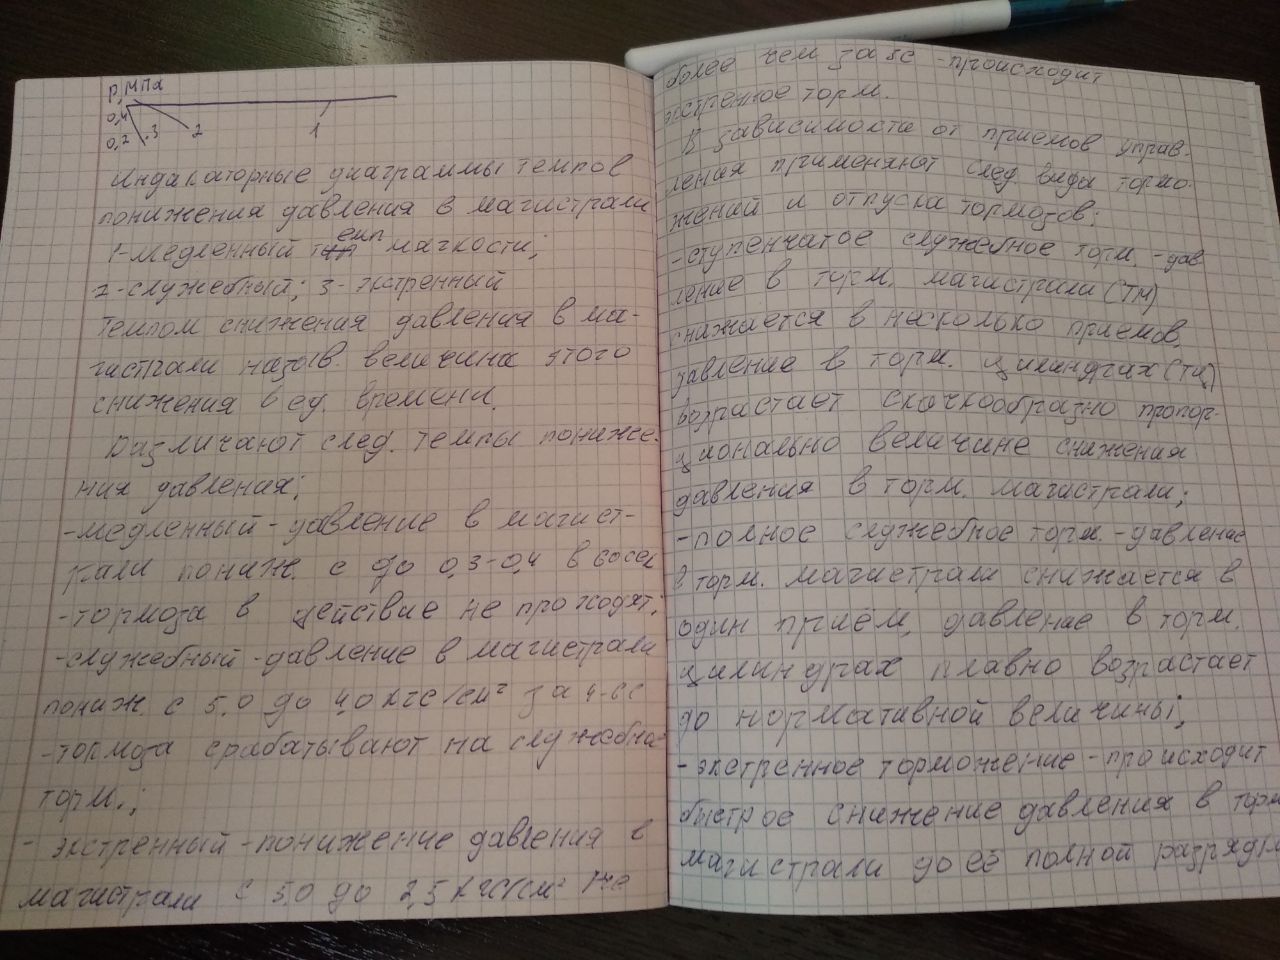 P, МПа
0,4
0,2
3
2
1
Индикаторные диаграммы темпов
понижения давления в магистрали
1-медленный темп мягкости;
2-служебный; 3- экстренный
Темпом снижения давления в ма-
гистрали назыв. величина этого
снижения в ед. времени.
Различают след. темпы пониже-
ния давления:
-медленный-давление в магист-
рали пониж. с до 0,3-0,4 в 60сек
-тормоза в действие не проходят;
-служебный-давление в магистрали
пониж. с 5.0 до 4,0 кгс/см² за 4-6с
-тормоза срабатывают на служебное
торм.;
- экстренный-понижение давления в
магистрали с 5.0 до 2,5 кгс/см² не
более чем за 5с -происходит
экстренное торм.
В зависимости от приемов управ-
ления применяют след. виды тормо-
жений и отпуска тормозов:
-ступенчатое служебное торм. -дав
ление в торм. магистрали (ТМ)
снижается в несколько приемов,
давление в торм. цилиндрах (ТЦ)
возрастает скачкообразно пропор-
ционально величине снижения
давления в торм. магистрали;
-полное служебное торм. -давление
в торм. магистрали снижается в
один приём, давление в торм.
цилиндрах плавно возрастает
до нормативной величины;
-экстренное торможение-происходит
быстрое снижение давления в торм
магистрали до её полной разрядки